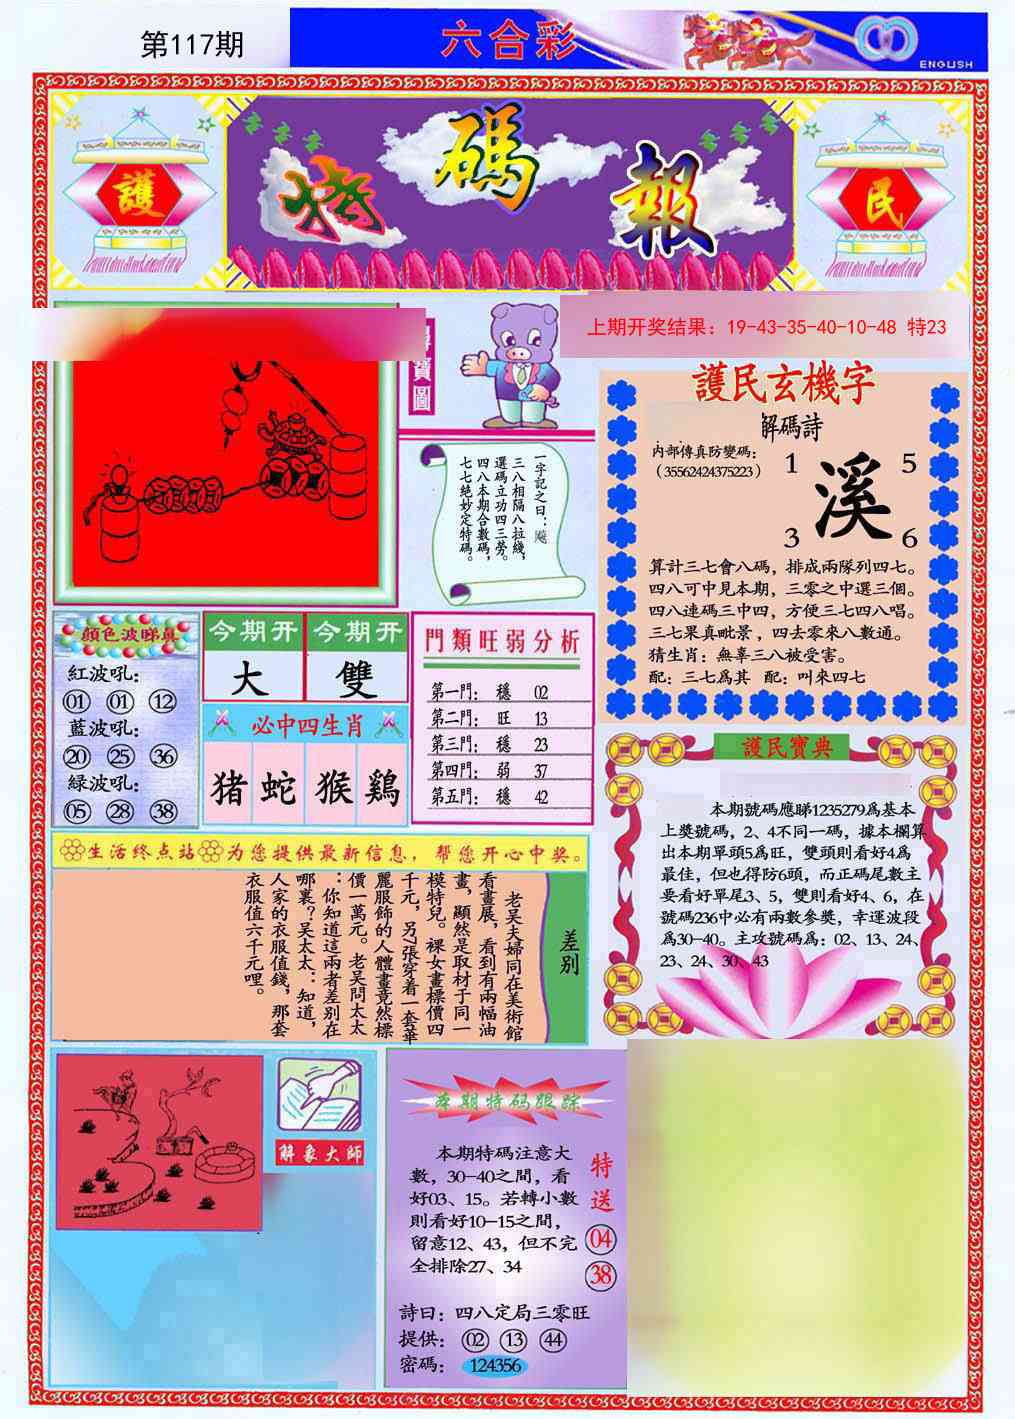 第117期
六合彩
ENGLISH
護
特碼報
民
寶圖
上期开奖结果：19-43-35-40-10-48 特23
一字記之曰：飚
三八相隔八拉綫，
選碼立功四三勞。
四八本期合數碼，
七七絕妙定特碼。
護民玄機字
解碼詩
内部傳真防變碼：
（35562424375223）
1
5
溪
3
6
算計三七會八碼，排成兩隊列四七。
四八可中見本期，三零之中選三個。
四八連碼三中四，方便三七四八唱。
三七果真毗景，四去零來八數通。
猜生肖：無辜三八被受害。
配：三七爲其 配：叫來四七
顏色波睇真
紅波吼：
01 01 12
藍波吼：
20 25 36
緑波吼：
05 28 38
今期开
今期开
大
雙
必中四生肖
猪 蛇 猴 鷄
門類旺弱分析
第一門： 穩 02
第二門： 旺 13
第三門： 穩 23
第四門： 弱 37
第五門： 穩 42
護民寶典
本期號碼應睇1235279爲基本
上獎號碼，2、4不同一碼，據本欄算
出本期單頭5爲旺，雙頭則看好4爲
最佳，但也得防6頭，而正碼尾數主
要看好單尾3、5，雙則看好4、6，在
號碼236中必有兩數參獎，幸運波段
爲30-40。主攻號碼爲：02、13、24、
23、24、30、43
生活终点站 为您提供最新信息，帮您开心中奖。
差别
老吴夫婦同在美術館
看畫展，看到有兩幅油
畫，顯然是取材于同一
模特兒。裸女畫標價四
千元，另7張穿着一套華
麗服飾的人體畫竟然標
價一萬元。老吴問太太
：你知道這兩者差别在
哪裏？吴太太：知道，
人家的衣服值錢，那套
衣服值六千元哩。
解象大師
本期特码跟踪
本期特碼注意大
數，30-40之間，看
好03、15。若轉小數
則看好10-15之間，
留意12、43，但不完
全排除27、34
特送
04
38
詩曰：四八定局三零旺
提供： 02 13 44
密碼： 124356